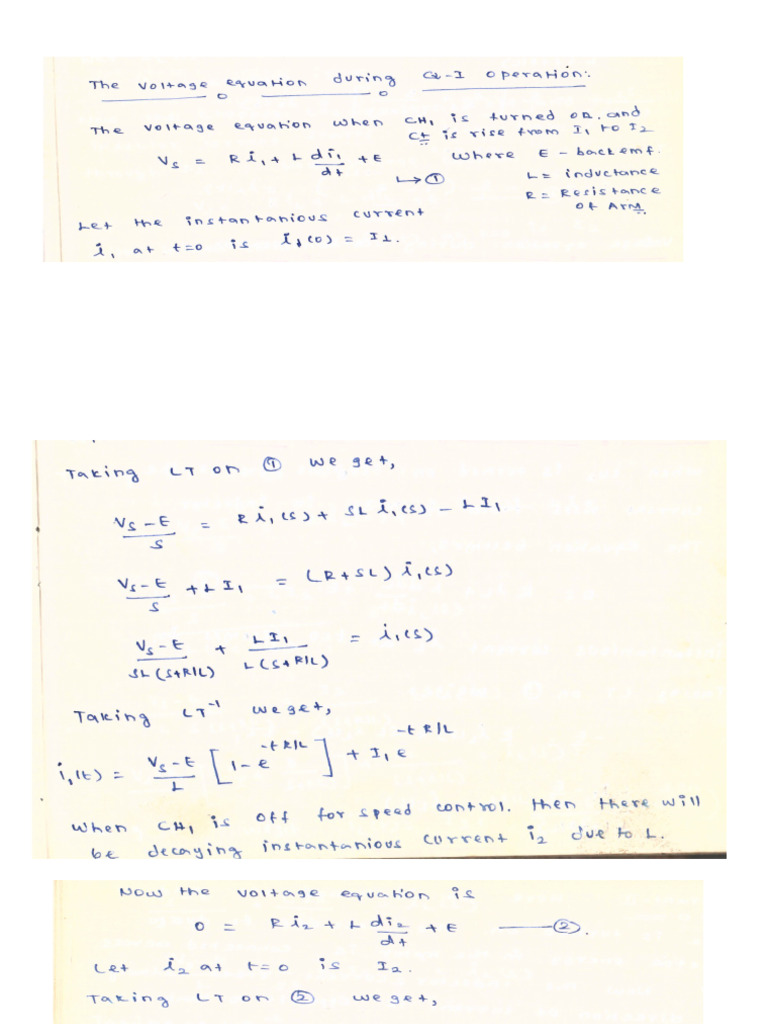 The voltage equation during Q-I operation:
The voltage equation when CH₁ is turned on. and
Ct is rise from I₁ to I₂
Vs = Ri₁ + L di₁/dt + E where E - back emf.
↳ ① L = inductance
R = Resistance
of Arm.
Let the instantanious current
i₁ at t=0 is i₁(0) = I₁.
Taking LT on ① we get,
(Vs-E)/s = R i₁(s) + SL i₁(s) - LI₁
(Vs-E)/s + LI₁ = (R+SL) i₁(s)
(Vs-E)/(SL(S+R/L)) + LI₁/(L(S+R/L)) = i₁(s)
Taking LT⁻¹ we get,
i₁(t) = (Vs-E)/L [1-e^(-tR/L)] + I₁ e^(-tR/L)
When CH₁ is off for speed control. then there will
be decaying instantanious current i₂ due to L.
Now the voltage equation is
0 = Ri₂ + L di₂/dt + E —— ②.
Let i₂ at t=0 is I₂.
Taking LT on ② we get,